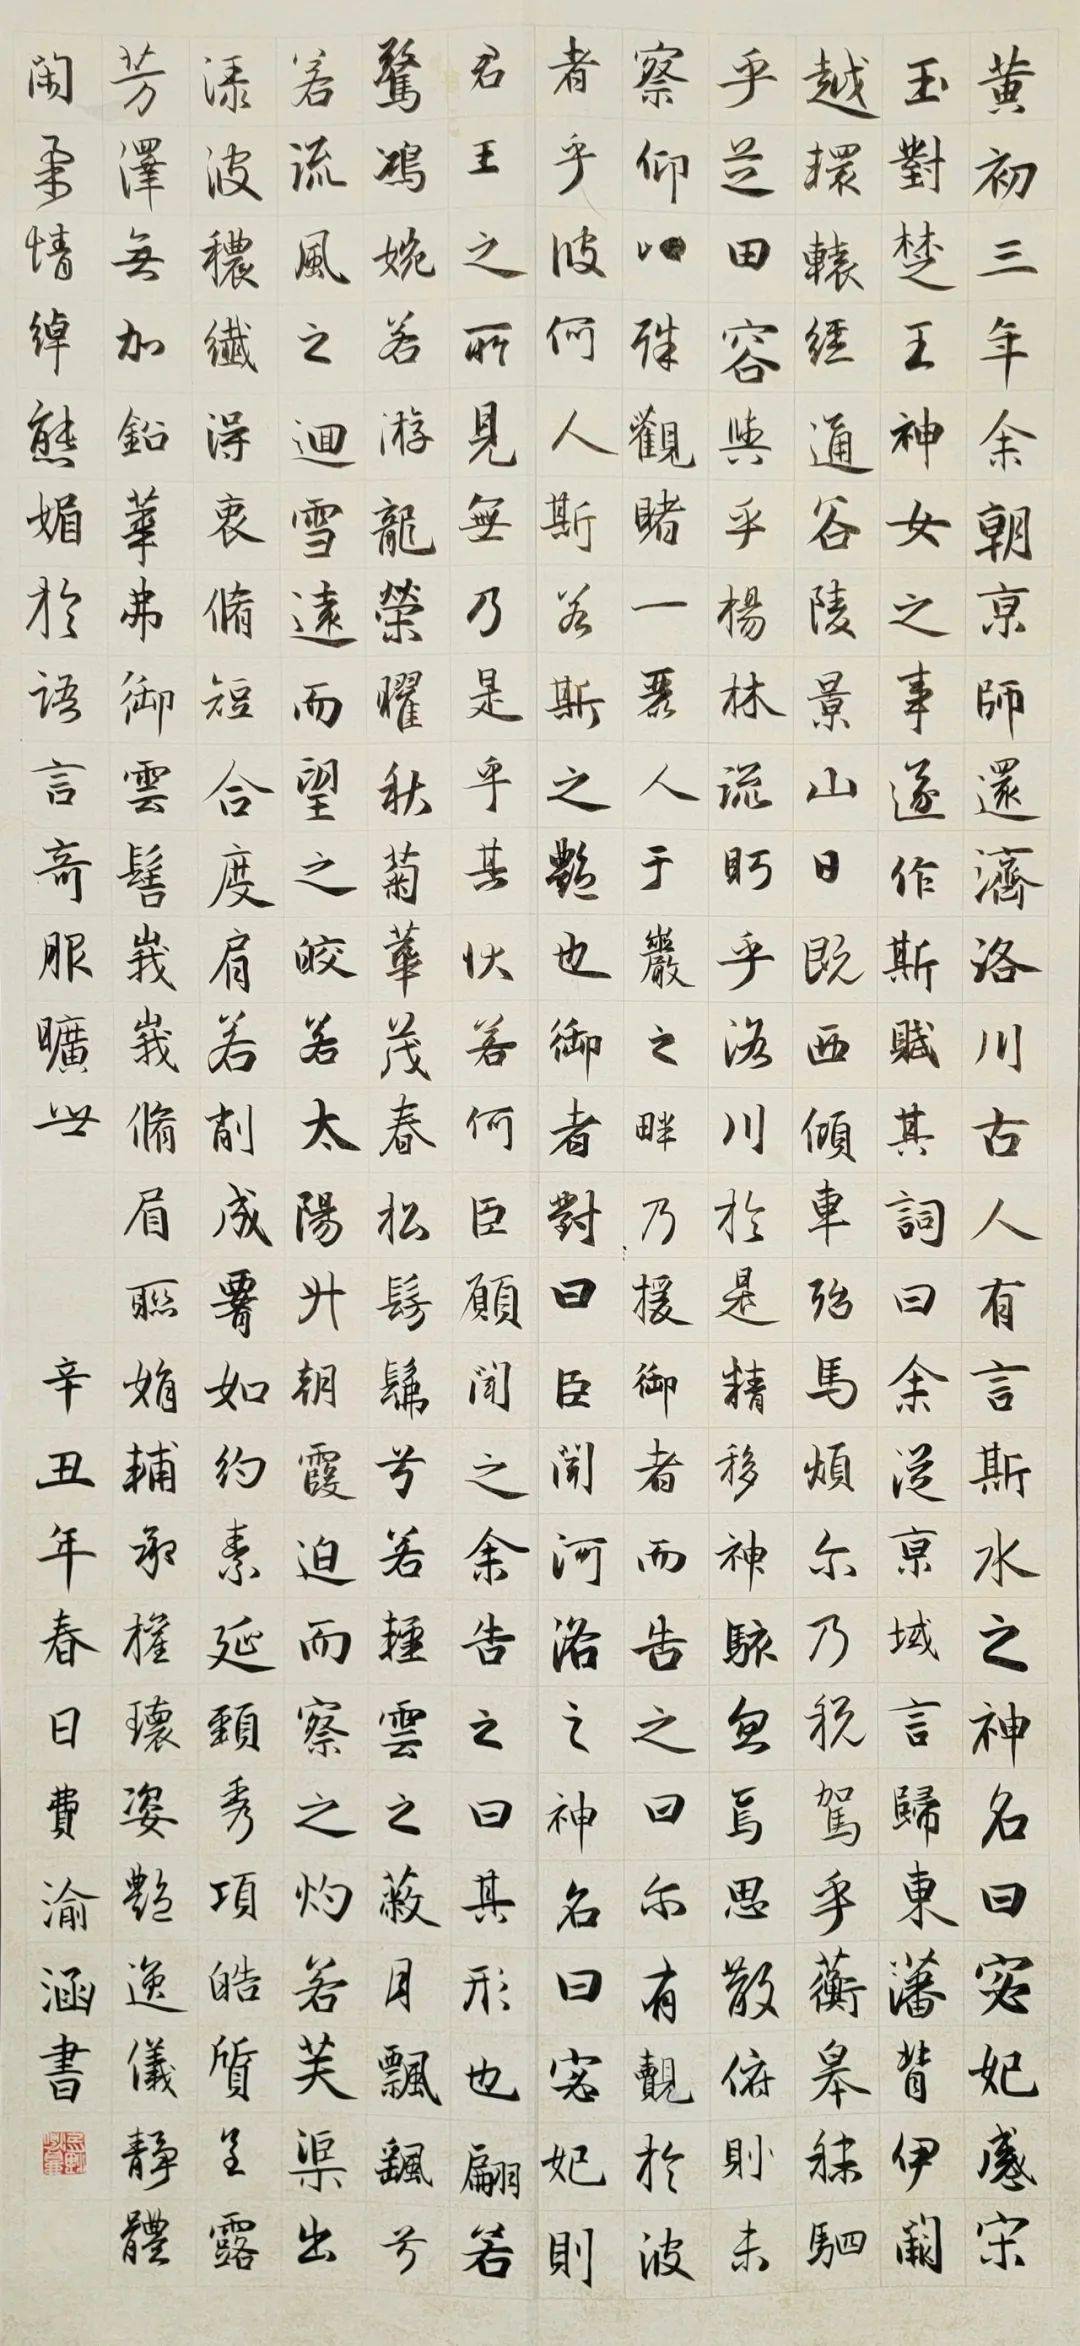 黃初三年余朝京師還濟洛川古人有言斯水之神名曰宓妃感宋
玉對楚王神女之事遂作斯賦其詞曰余從京域言歸東藩背伊闕
越轘轅經通谷陵景山日既西傾車殆馬煩尔乃税駕乎蘅皋秣駟
乎芝田容與乎楊林流眄乎洛川於是精移神駭忽焉思散俯則未
察仰以殊觀睹一麗人于巖之畔乃援御者而告之曰尔有覩於彼
者乎彼何人斯若斯之艷也御者對曰臣聞河洛之神名曰宓妃則
君王之所見無乃是乎其狀若何臣願聞之余告之曰其形也翩若
驚鴻婉若游龍榮曜秋菊華茂春松髣髴兮若輕雲之蔽月飄飖兮
若流風之迴雪遠而望之皎若太陽升朝霞迫而察之灼若芙渠出
渌波穠纖得衷脩短合度肩若削成䙅如約素延頸秀項皓質呈露
芳澤無加鉛華弗御雲髻峩峩脩眉聯娟輔承權瓌姿艷逸儀靜體
閑柔情綽態媚於語言奇服曠世
辛丑年春日費渝涵書